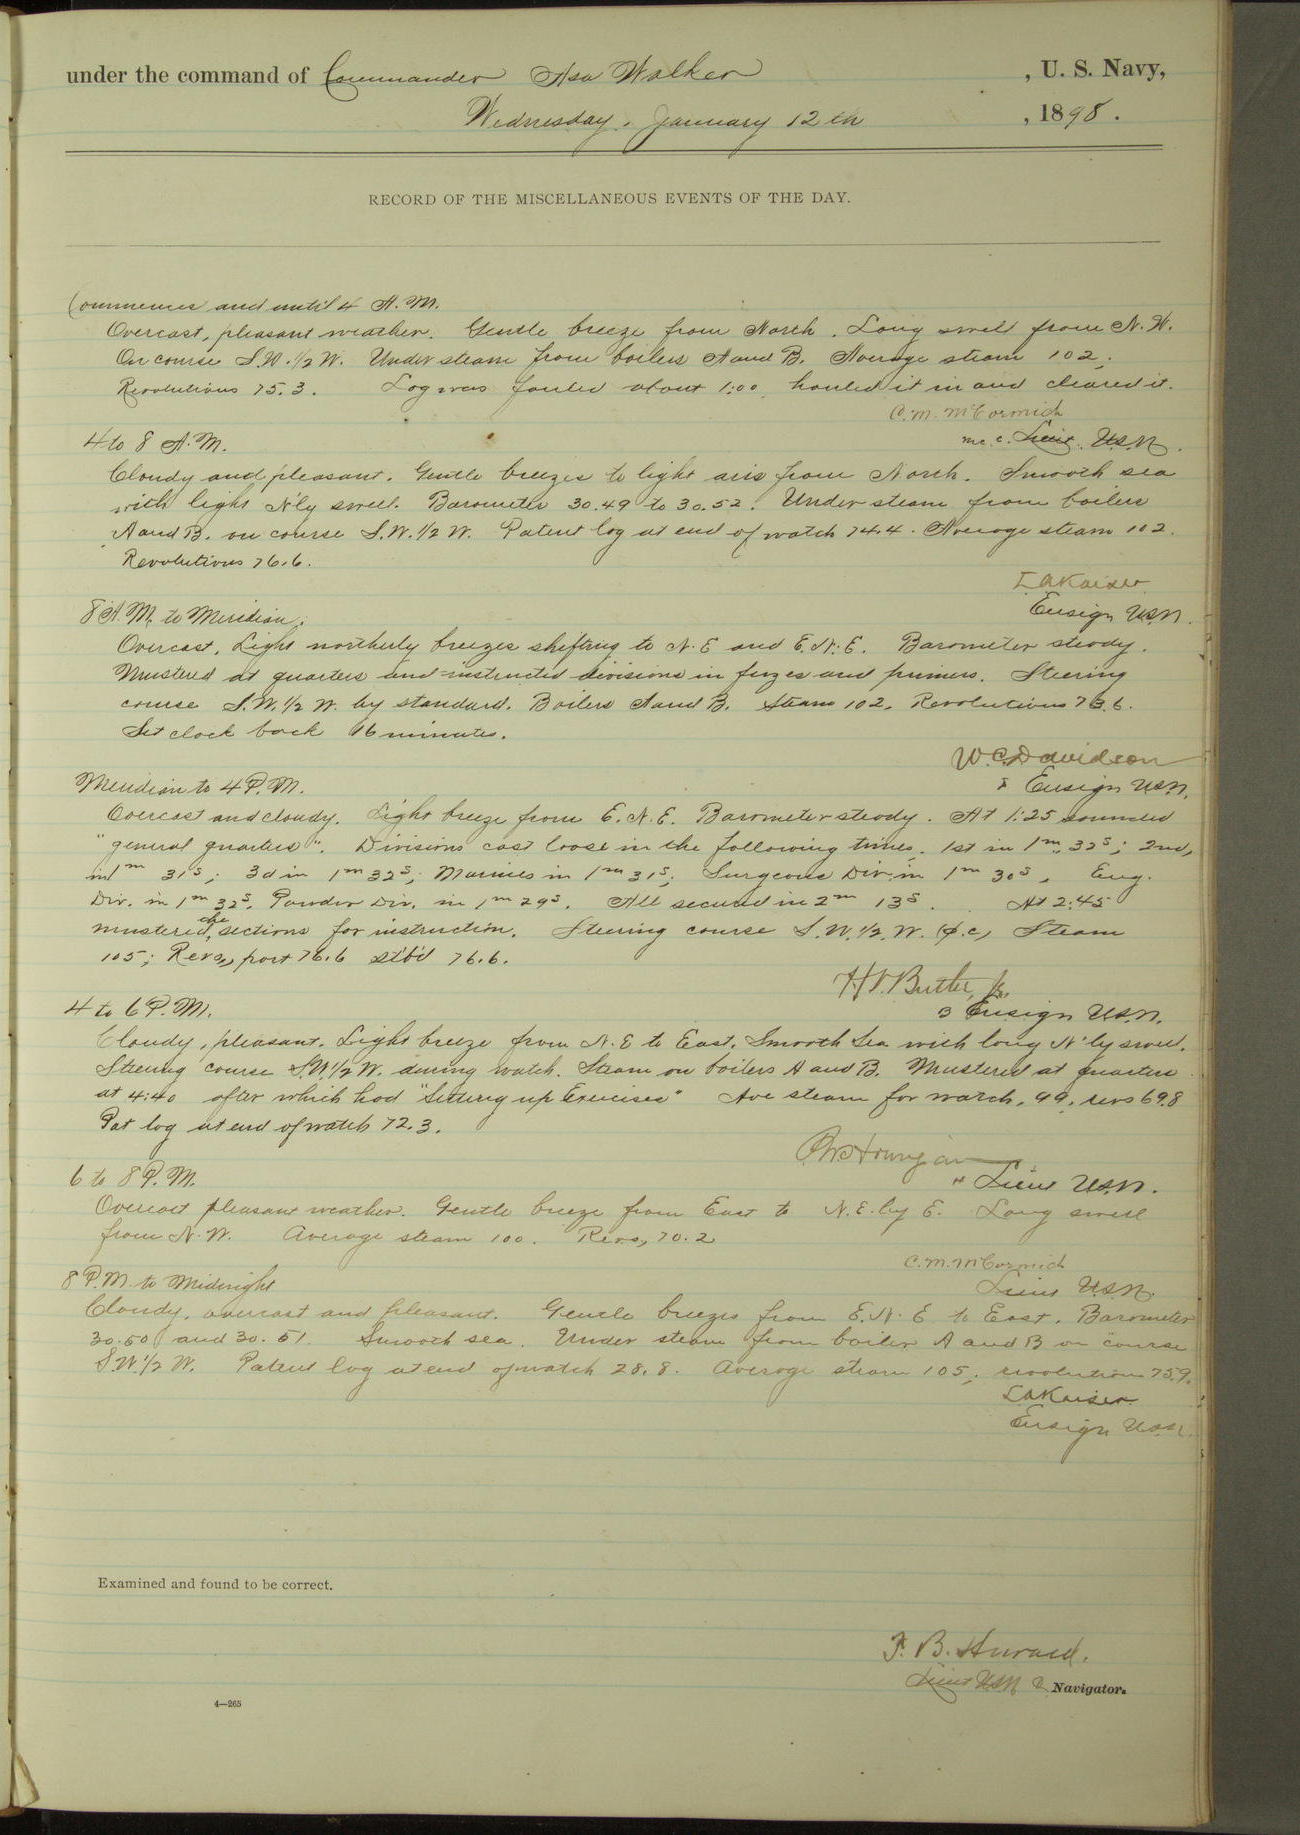 under the command of Commander Asa Walker , U. S. Navy,
Wednesday, January 12th , 1898.
RECORD OF THE MISCELLANEOUS EVENTS OF THE DAY.
Commences and until 4 A.M.
Overcast, pleasant weather. Gentle breeze from North. Long swell from N.W.
On course S.W. 1/2 W. Under steam from boilers A and B. Average steam 102,
Revolutions 75.3. Log was fouled about 1:00, hauled it in and cleared it.
C.M. McCormick
Lieut. U.S.N.
4 to 8 A.M.
Cloudy and pleasant. Gentle breezes to light airs from North. Smooth sea
with light N'ly swell. Barometer 30.49 to 30.52. Under steam from boilers
A and B. on course S.W. 1/2 W. Patent log at end of watch 74.4. Average steam 102.
Revolutions 76.6.
L A Kaiser
Ensign U.S.N.
8 A.M. to Meridian.
Overcast. Light northerly breezes shifting to N.E and E.N.E. Barometer steady.
Mustered at quarters and instructed divisions in fuzes and primers. Steering
course S.W. 1/2 W. by standard. Boilers A and B. Steam 102. Revolutions 73.6.
Set clock back 16 minutes.
W.C. Davidson
Ensign U.S.N.
Meridian to 4 P.M.
Overcast and cloudy. Light breeze from E.N.E. Barometer steady. At 1:25 sounded
"general quarters". Divisions cast loose in the following times. 1st in 1m 32s; 2nd,
in 1m 31s; 3d in 1m 32s; Marines in 1m 31s; Surgeons Div. in 1m 30s, Eng.
Div. in 1m 32s. Powder Div. in 1m 29s. All secured in 2m 13s. At 2:45
mustered the sections for instruction. Steering course S.W. 1/2 W. (p.c.) Steam
105; Revs, port 76.6 stb'd 76.6.
H.V. Butler, Jr.
Ensign U.S.N.
4 to 6 P.M.
Cloudy, pleasant. Light breeze from N.E to East. Smooth Sea with long N'ly swell.
Steering course S.W 1/2 W. during watch. Steam on boilers A and B. Mustered at quarters
at 4:40 after which had "Setting up Exercises" Ave steam for watch, 99, revs 69.8
Pat log at end of watch 72.3.
Lieut U.S.N.
6 to 8 P.M.
Overcast pleasant weather. Gentle breeze from East to N.E. by E. Long swell
from N.W. Average steam 100. Revs, 70.2
C.M. McCormick
Lieut U.S.N.
8 P.M. to Midnight
Cloudy, overcast and pleasant. Gentle breezes from E.N.E to East. Barometer
30.50 and 30.51. Smooth sea. Under steam from boiler A and B on course
S.W. 1/2 W. Patent log at end of watch 28.8. Average steam 105, revolutions 75.9.
L A Kaiser
Ensign U.S.N.
Examined and found to be correct.
Lieut U.S.N Navigator.
4—265